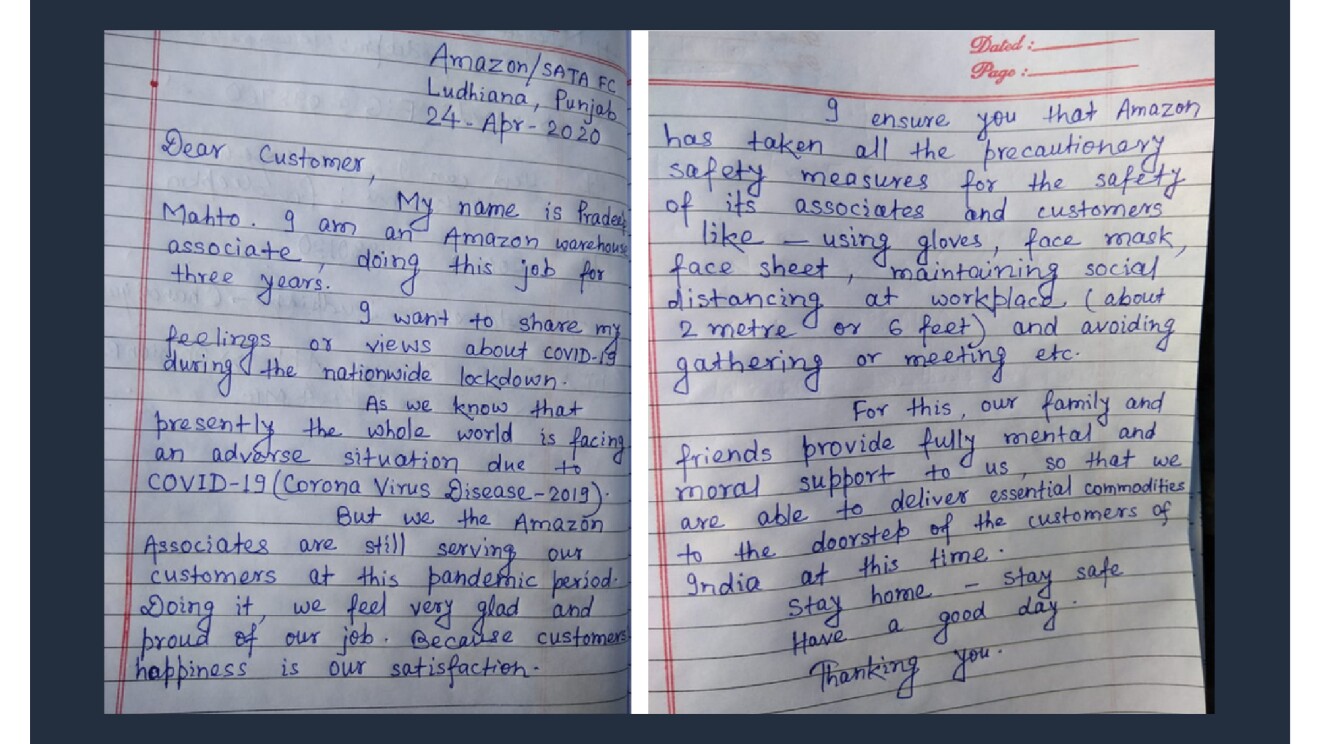 Amazon/SATA FC
Ludhiana, Punjab
24-Apr-2020
Dear Customer,
My name is Pradeep
Mahto. I am an Amazon warehouse
associate, doing this job for
three years.
I want to share my
feelings or views about COVID-19
during the nationwide lockdown.
As we know that
presently the whole world is facing
an adverse situation due to
COVID-19 (Corona Virus Disease-2019).
But we the Amazon
Associates are still serving our
customers at this pandemic period.
Doing it, we feel very glad and
proud of our job. Because customers
happiness is our satisfaction.
Dated :
Page :
I ensure you that Amazon
has taken all the precautionary
safety measures for the safety
of its associates and customers
like – using gloves, face mask,
face sheet, maintaining social
distancing at workplace (about
2 metre or 6 feet) and avoiding
gathering or meeting etc.
For this, our family and
friends provide fully mental and
moral support to us, so that we
are able to deliver essential commodities
to the doorstep of the customers of
India at this time.
Stay home – stay safe
Have a good day.
Thanking you.